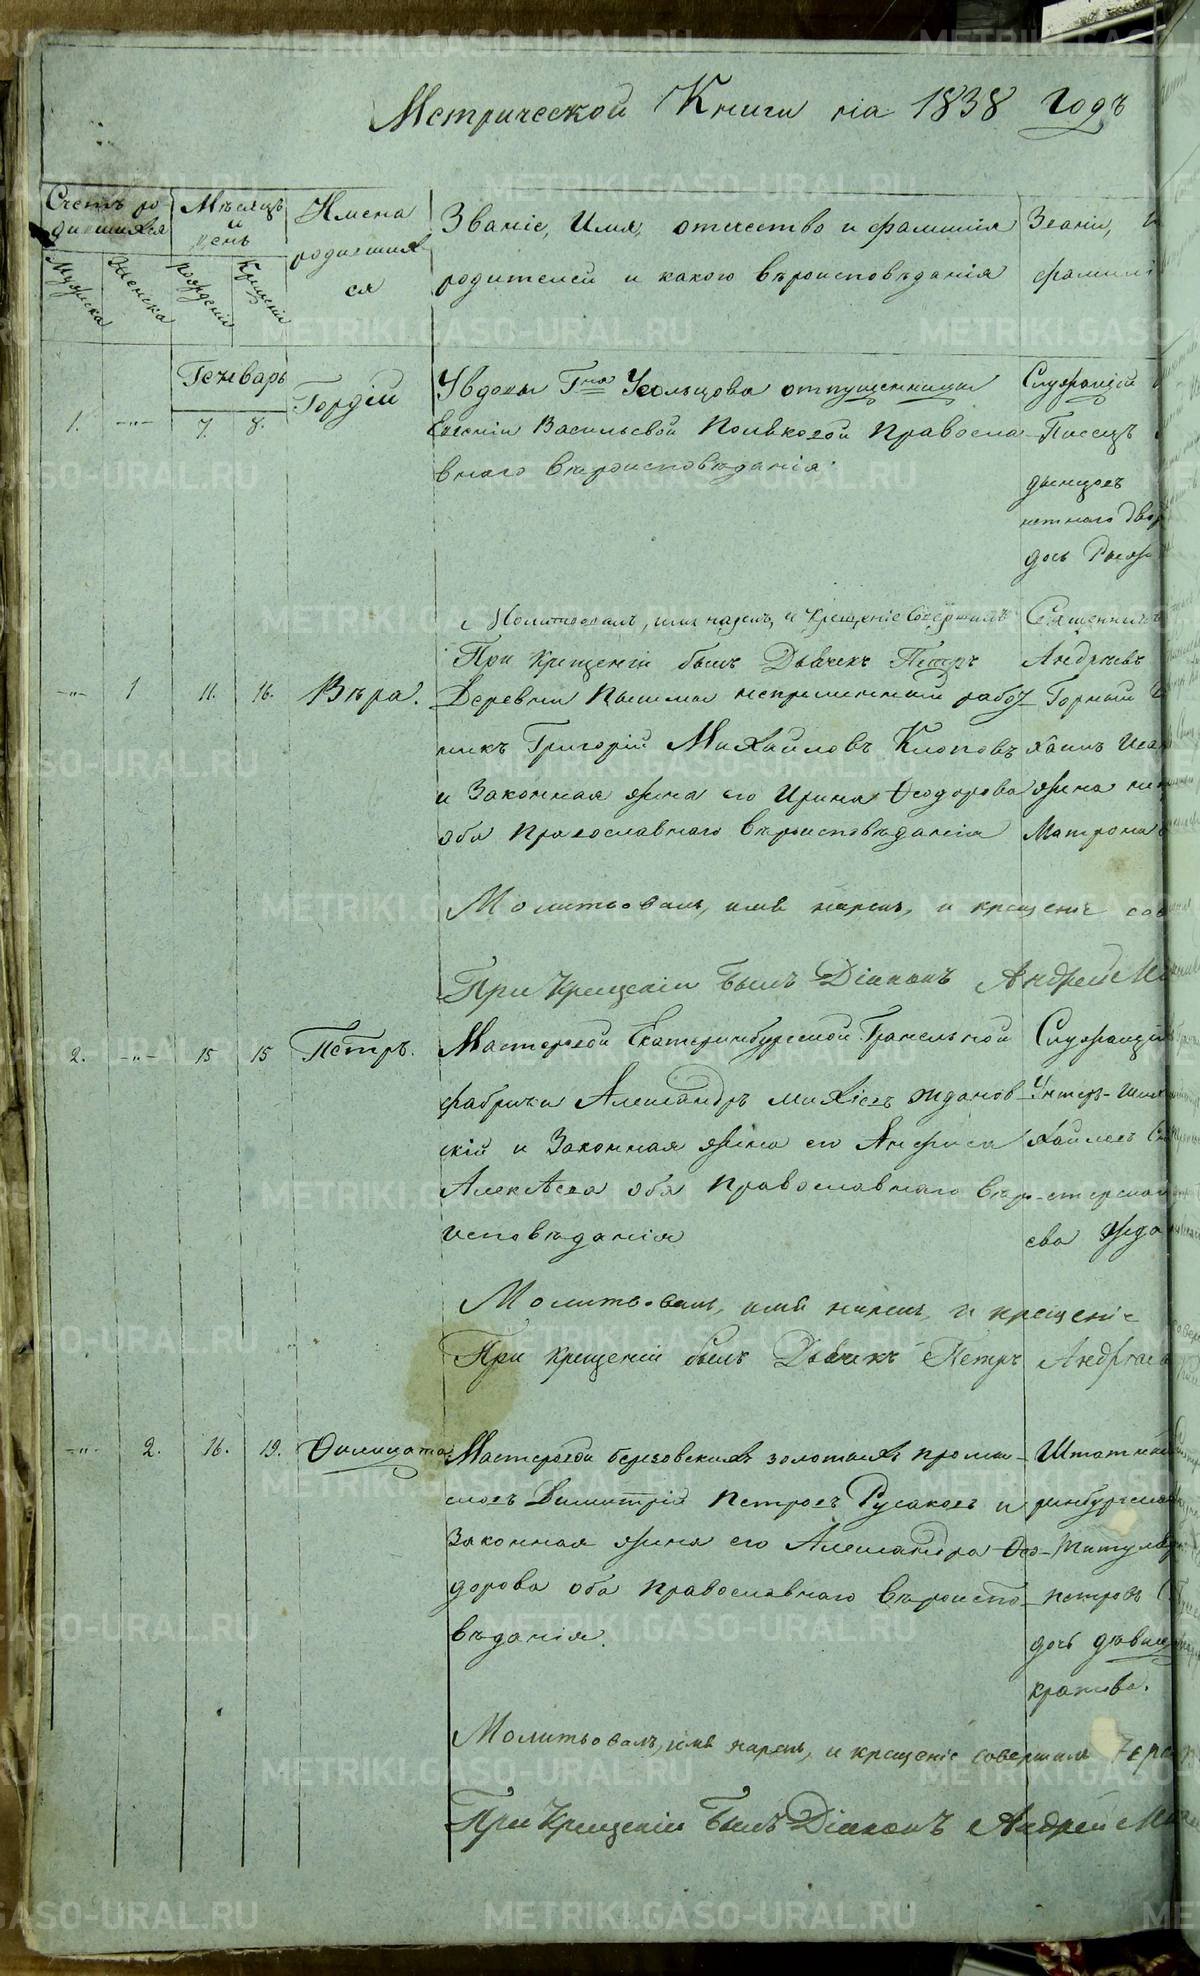 Метрической Книги на 1838 Годъ
Счетъ ро-
дившихся
Мѣсяцъ
и
день
Имена
родивших
ся
Званіе, Имя, отчество и фамилія
родителей и какого вѣроисповѣданія
Званіи,
фамилі
Мужеска
Женска
рожденія
Крещенія
Генварь
1. -"- 7. 8. Гордій
У вдовы Гна Усольцова отпущенницы
Васильевой Поляковой Правосла
внаго вѣроисповѣданія.
Служащій
Писецъ
нетнаго двор
Молитвовалъ, имя нарекъ, и крещеніе совершилъ Священникъ
При Крещеніи былъ Дьячекъ Петръ Андрѣевъ
-"- 1 11. 16. Вѣра.
Деревни Пышмы непременный работ
никъ Григорій Михайловъ Клоповъ
и Законная жена его Ирина Феодорова
оба Православнаго вѣроисповѣданія
Горный
жена
Матрона
Молитвовалъ, имя нарекъ, и крещеніе сов
При Крещеніи былъ Діаконъ Андрей
2. -"- 15 15 Петръ.
Мастеровой Екатеринбургской Гранильной
фабрики Александръ Жданов
скій и Законная жена его Анфиса
Алекѣева оба Православнаго вѣро
исповѣданія
Служащій
Унтеръ-
хайловъ
ева Жда
Молитвовалъ, имя нарекъ, и крещеніе
При Крещеніи былъ Дьячекъ Петръ Андрѣевъ
-"- 2. 16. 19. Филицата
Мастеровой березовскихъ золотыхъ промы-
словъ Димитрій Петровъ Русаковъ и
Законная жена его Александра Фео-
дорова оба Православнаго вѣроиспо-
вѣданія.
Штатный
ринбургской
Титуляр
Петровъ
дочь дѣвиц
Молитвовалъ, имя нарекъ, и крещеніе совершилъ
При Крещеніи былъ Діаконъ Андрей
METRIKI.GASO-URAL.RU